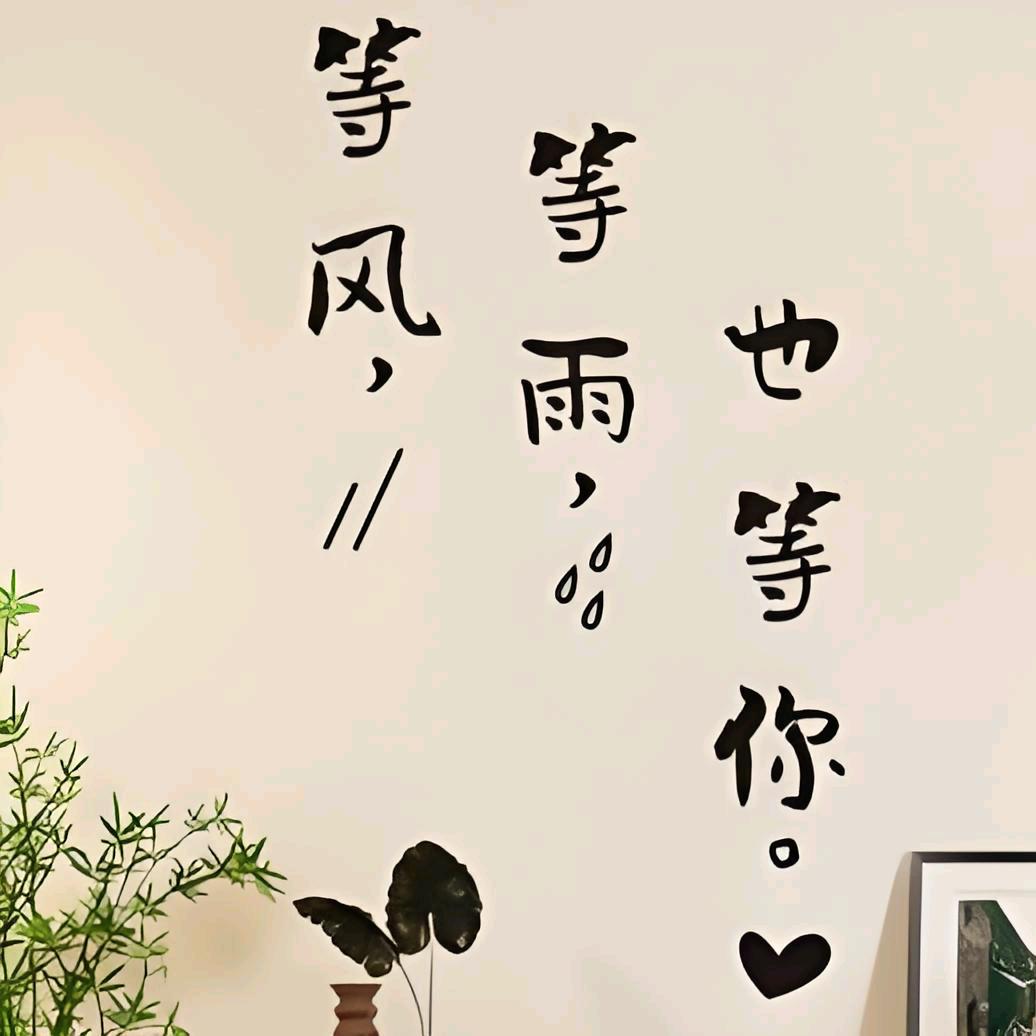 等风，
等雨，
也等你。